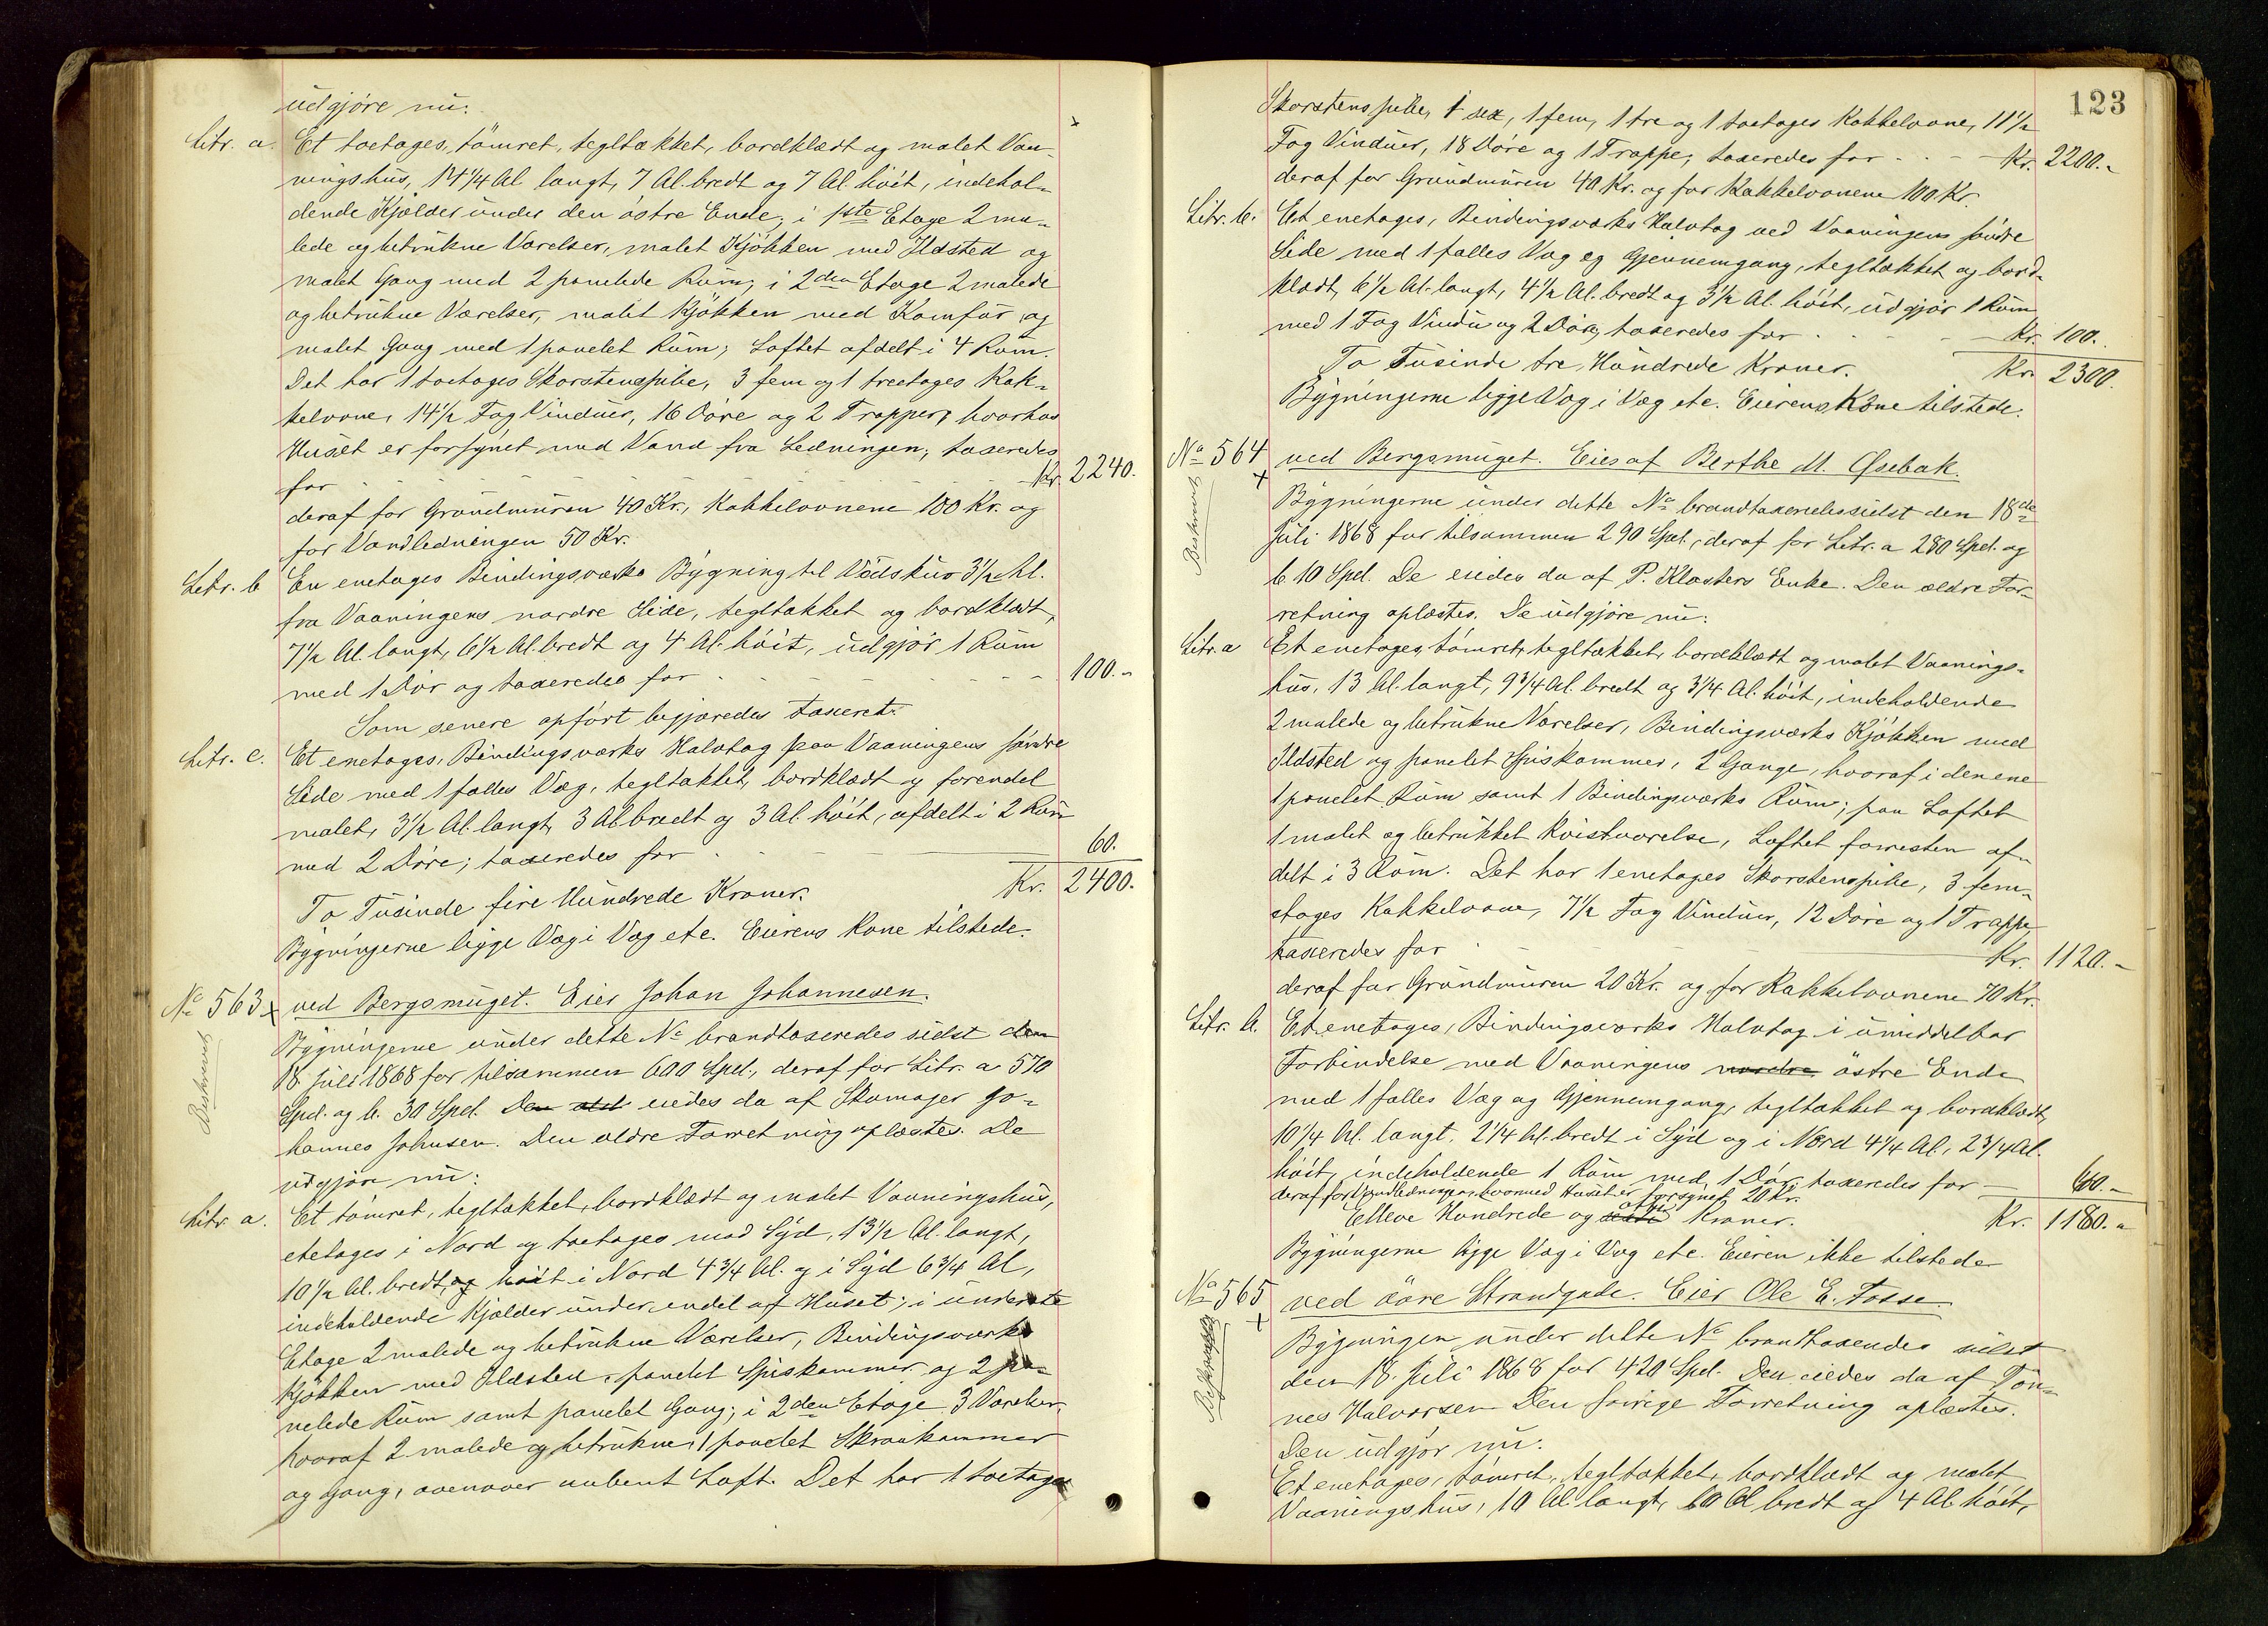 udgjøre nu:
Litr. a. Et toetages, tömret, tegltækket, bordklædt og malet Vaa-
ningshus, 14 1/4 Al langt, 7 Al. bredt og 7 Al. höit, indehol-
dende Kjælder under den östre Ende; i 1ste Etage 2 ma-
lede og betrukne Værelser, malet Kjökken med Ildsted og
malet Gang med 2 panelede Rum; i 2den Etage 2 malede
og betrukne Værelser, malet Kjökken med Komfur og
malet Gang med 1 panelet Rum; Loftet afdelt i 4 Rum.
Det har 1 toetages Skorstenspibe, 3 fem og 1 treetages Kak-
kelovne, 14 1/2 Fag Vinduer, 16 Döre og 2 Trapper, hvorhos
Huset er forsynet med Vand fra Ledningen; taxeredes
for - - - - - - Kr. 2240.
deraf for Grundmuren 40 Kr., Kakkelovnene 100 Kr. og
for Vandledningen 50 Kr.
Litr. b En enetages Bindingsværks Bygning til Vedskur 3 1/2 Al.
fra Vaaningens nordre Side, tegltækket og bordklædt,
7 1/2 Al. langt, 6 1/2 Al. bredt og 4 Al. höit, udgjör 1 Rum
med 1 Dör og taxeredes for - - - - - 100.-
Som senere opfört begjæredes taxeret.
Litr. c. Et enetages, Bindingsværks Halvtag paa Vaaningens söndre
Side med 1 fælles Væg, tegltækket, bordklædt og forendel
malet, 3 1/2 Al. langt, 3 Al bredt og 3 Al. höit, afdelt i 2 Rum
med 2 Döre; taxeredes for - - 60.
To Tusinde fire Hundrede Kroner. Kr. 2400.
Bygningerne ligge Væg i Væg etc. Eierens Kone tilstede.
No 563 x ved Bergsmuget. Eier Johan Johannesen.
Bygningerne under dette No brandtaxeredes sidst den
18 Juli 1868 for tilsammen 600 Spd., deraf for Litr. a 570
Spd. og b. 30 Spd. Den eiedes da af Skomager Jo-
hannes Johnsen. Den ældre Forretning oplæstes. De
udgjöre nu:
Litr. a. Et tömret, tegltækket, bordklædt og malet Vaaningshus,
etetages i Nord og toetages mod Syd, 13 1/2 Al. langt,
10 1/2 Al. bredt, og höit i Nord 4 3/4 Al. og i Syd 6 3/4 Al,
indeholdende Kjælder under endel af Huset; i underste
Etage 2 malede og betrukne Værelser, Bindingsværks
Kjökken med Ildsted, panelet Spiskammer og 2 pa-
nelede Rum samt panelet Gang; i 2den Etage 3 Værelser,
hvoraf 2 malede og betrukne, 1 panelet Skraakammer
og Gang, ovenover uabent Loft. Det har 1 toetages
123
Skorstenspibe, 1 sex, 1 fem, 1 tre og 1 toetages Kakkelovne, 11 1/2
Fag Vinduer, 18 Döre og 1 Trappe; taxeredes for - - - Kr. 2200.-
deraf for Grundmuren 40 Kr. og for Kakkelovnene 100 Kr.
Litr. b. Et enetages, Bindingsværks Halvtag ved Vaaningens söndre
Side med 1 fælles Væg og Gjennemgang, tegltækket og bord-
klædt, 6 1/2 Al. langt, 4 1/2 Al. bredt og 3 1/2 Al. höit, udgjör 1 Rum
med 1 Fag Vindu og 2 Döre, taxeredes for - - - Kr. 100.
To Tusinde tre Hundrede Kroner. Kr. 2300.
Bygningerne ligge Væg i Væg etc. Eierens Kone tilstede.
No 564 x ved Bergsmuget. Eies af Berthe M. Øsebak.
Bygningerne under dette No brandtaxeredes sidst den 18de
Juli 1868 for tilsammen 290 Spd., deraf for Litr. a 280 Spd. og
b 10 Spd. De eiedes da af P. Klosters Enke. Den ældre For-
retning oplæstes. De udgjöre nu:
Litr. a Et enetages, tömret, tegltækket, bordklædt og malet Vaanings-
hus, 13 Al. langt, 9 3/4 Al. bredt og 3 3/4 Al. höit, indeholdende
2 malede og betrukne Værelser, Bindingsværks Kjökken med
Ildsted og panelet Spiskammer, 2 Gange, hvoraf i den ene
1 panelet Rum samt 1 Bindingsværks Rum; paa Loftet
1 malet og betrukket Kvistværelse, Loftet forresten af-
delt i 3 Rum. Det har 1 enetages Skorstenspibe, 3 fem-
etages Kakkelovne, 7 1/2 Fag Vinduer, 12 Döre og 1 Trappe,
taxeredes for - Kr. 1120.-
deraf for Grundmuren 20 Kr. og for Kakkelovnene 70 Kr.
Litr. b. Et enetages, Bindingsværks Halvtag i umiddelbar
Forbindelse med Vaaningens nordre östre Ende
med 1 fælles Væg og Gjennemgang, tegltækket og bordklædt,
10 1/4 Al. langt, 2 1/4 Al. bredt i Syd og i Nord 4 1/4 Al., 2 3/4 Al.
höit, indeholdende 1 Rum med 1 Dör, taxeredes for - 60.-
deraf for Vandledningen, hvormed Huset er forsynet, 20 Kr.
Elleve Hundrede og otti Kroner. Kr. 1180.-
Bygningerne ligge Væg i Væg etc. Eieren ikke tilstede
No 565 x ved övre Strandgade. Eier Ole E. Fosse.
Bygningen under dette No brandtaxeredes sidst
den 18. Juli 1868 for 420 Spd. Den eiedes da af Tön-
nes Halvorsen. Den forrige Forretning oplæstes.
Den udgjör nu:
Et enetages, tömret, tegltækket, bordklædt og malet
Vaaningshus, 10 Al. langt, 10 Al bredt og 4 Al. höit,